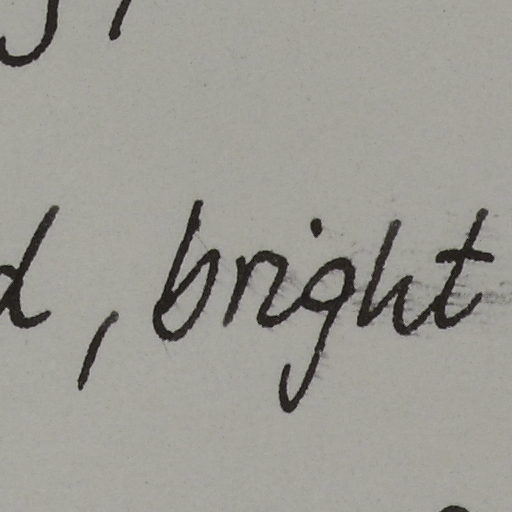 d, bright